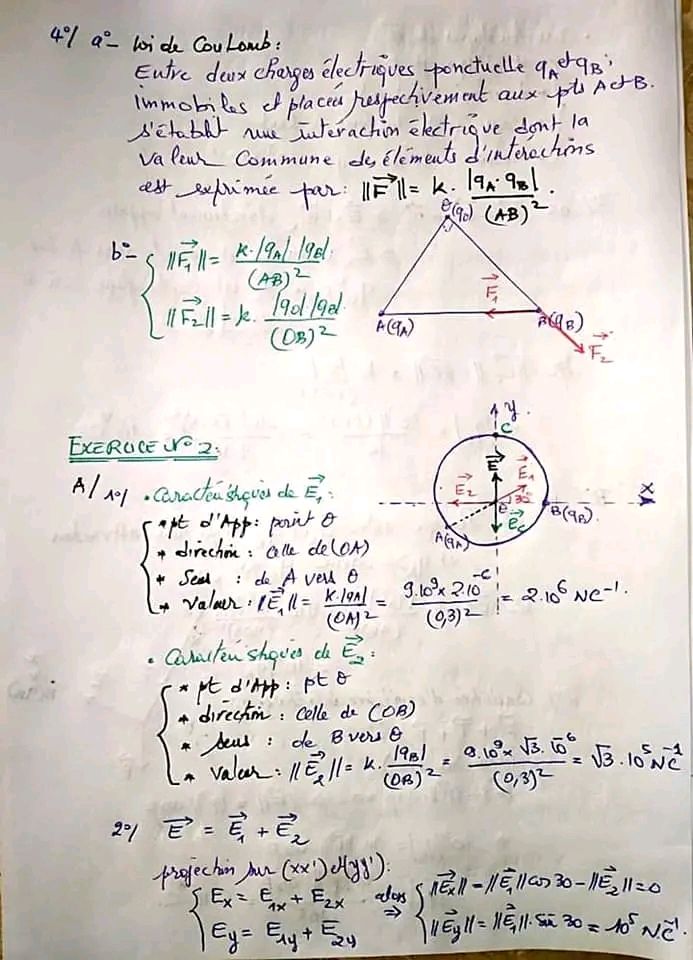 4°/ a°- Loi de Coulomb:
Entre deux charges électriques ponctuelle qA et qB,
immobiles et placées respectivement aux pts A et B.
s'établit une intéraction électrique dont la
valeur Commune des éléments d'intéractions
est exprimée par: ||F⃗|| = K. |qA.qB| / (AB)².
θ(q0)
b°- { ||F⃗1|| = K.|qA|.|qB| / (AB)²
||F⃗2|| = K. |q0|.|qB| / (OB)²
F⃗1
A(qA) B(qB)
F⃗2
EXERCICE N° 2:
y
C
E⃗ E⃗1
E⃗2 θ 30° x
B(qB)
e⃗c
A(qA)
A/ 1°/ • Caractéristiques de E⃗1:
* pt d'App: point θ
* direction: celle de (OA)
* Sens : de A vers θ
* valeur: ||E⃗1|| = K.|qA| / (OA)² = 9.10⁹ x 2.10⁻⁶ / (0,3)² = 2.10⁶ NC⁻¹.
• Caractéristiques de E⃗2:
* pt d'App: pt θ
* direction: Celle de (OB)
* sens : de B vers θ
* valeur: ||E⃗2|| = K. |qB| / (OB)² = 9.10⁹ x √3.10⁻⁶ / (0,3)² = √3.10⁵ NC⁻¹
2°/ E⃗ = E⃗1 + E⃗2
projection sur (xx') et (yy'):
{ Ex = E1x + E2x alors ⇒ { ||E⃗x|| = ||E⃗1|| cos 30 - ||E⃗2|| = 0
Ey = E1y + E2y ||E⃗y|| = ||E⃗1||. sin 30 = 10⁵ NC⁻¹